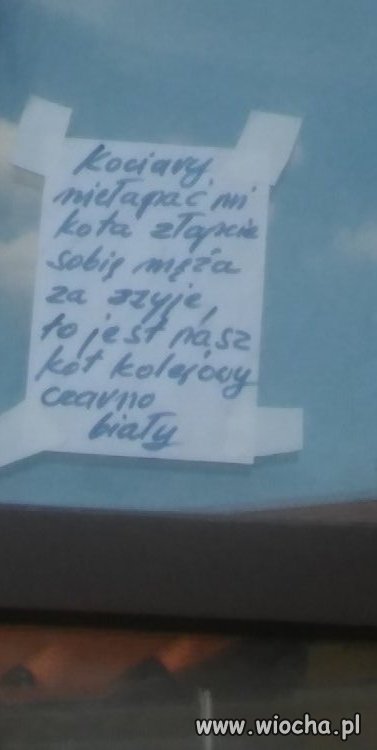 Kociary
niełapać mi
kota złąpcie
sobię męża
za szyje,
to jest nasz
kot kolejowy
czarno
biały
www.wiocha.pl